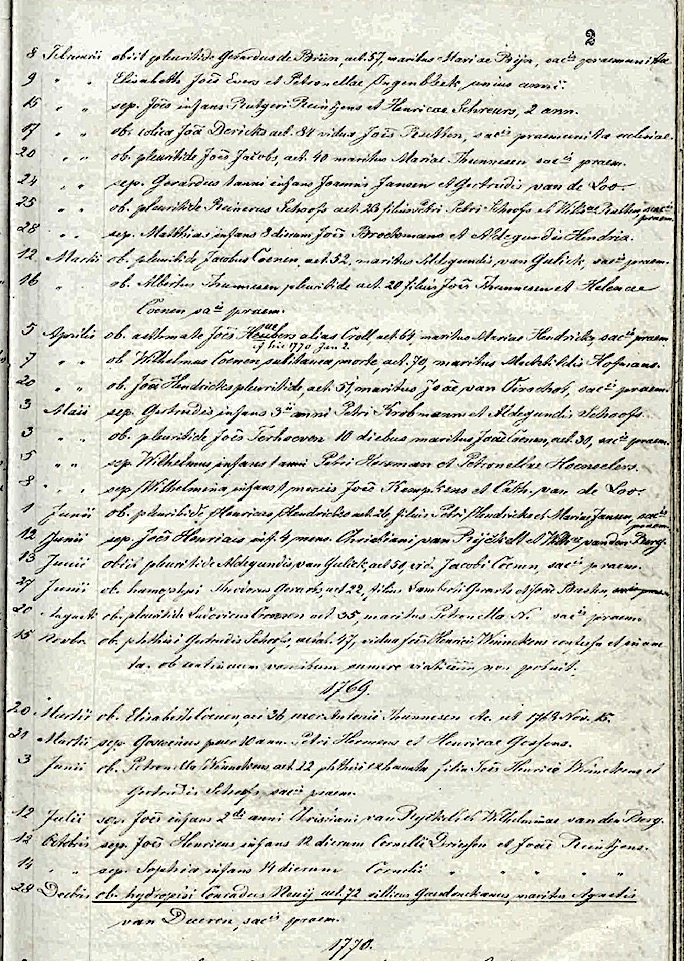 2
8 Februarii obiit pleuritide Gerardus de Bruin, aet. 57, maritus Mariae Ryn, sac.is praemunitus
9 " " Elisabeth Joës Evers et Petronellae Ingenbleek, unius anni.
15 " " sep. Joës infans Rutgeri Reintjens et Henricae Schreurs, 2 ann.
17 " " ob. colica Joä Dericks aet. 84 vidua Joës Peschen, sac.is praemunita ecclesiae.
20 " " ob. pleuritide Joës Jacobs, aet. 40 maritus Mariae Thunnesen sac.is praem.
24 " " sep. Gerardus 1 anni infans Joannis Jansen et Gertrudis van de Loo.
25 " " ob. pleuritide Reinerus Schoofs aet. 23 filius Petri Schoofs et sac.is praem.
28 " " sep. Matthias infans 3 dierum Joës Brockmans et Aldegundis Hendrix.
12 Martii ob. pleuritide Jacobus Coenen, aet. 52, maritus Aldegundis van Gulick, sac.is praem.
16 " ob. Albertus Thunnesen pleuritide aet. 20 filius Joës Thunnesen et Helenae
Coenen sac.is praem.
5 Aprilis ob. asthmate Joës Heubers alias Croll, aet. 64, maritus Mariae Hendricks sac.is praem
cf hic 1770 Jan 2.
7 " " ob. Wilhelmus Coenen, subitanea morte, aet. 70, maritus Mechtildis Hofmans.
20 " " ob. Joä Hendricks pleuritide, aet. 57 maritus Joäe van Oirschot, sac.is praem.
3 Maii sep. Gertrudis infans 3ii anni Petri Krobmann et Aldegundis Schoofs.
3 " " ob. pleuritide Joës Terhoeven 10 diebus maritus Joäe Coenen, aet. 30, sac.is praem.
5 " " sep. Wilhelmus infans 1 anni Petri Herman et Petronellae Hoenselers.
8 " " sep. Wilhelmina infans 1 mensis Joës Kempkens et Cath. van de Loo.
1 Junii ob. pleuritide, Henricus Hendricks aet. 26 filius Petri Hendricks et Mariae Jansen, sac.is praem.
12 Junii sep. Joës Henricus inf. 4 mens. Christiani van Rijckelt et Wilh.ae van den Berg.
13 Junii obiit pleuritide Aldegundis van Gulick aet 50, vid. Jacobi Coenen, sac.is praem.
27 Junii ob. hamophysi Gerarts, aet 22, filius Lamberti Gerarts et Joäe
20 Augusti ob. pleuritide Ludovicus aet 35, maritus Petronella N. sac.is praem.
15 Novbr. ob. phthisi Gertrudis Schoofs, aetat. 47, vidua Joës Henrici Winnekens confessa et
ta. ob continuum vomitum sumere viaticum non potuit.
1769.
20 Martii ob. Elisabeth Coenen aet 36 uxor Antonii Thunnesen etc. ut 1763 Nov. 15.
21 Martii sep. Goswinus puer 10 ann. Petri Hermens et Henricae Gossens.
3 Junii ob. Petronella Winnekens, aet. 12 phthisi exhausta filia Joës Henrici Winnekens et
Gertrudis Schoofs, sac.is praem.
12 Julii sep. Joës infans 2di anni Christiani van Ryckelt et Wilhelminae van den Berg.
12 Octobris sep. Joës Henricus infans 12 dierum Cornelii Driessen et Joäe Reintjens.
14 " " sep. Sophia infans 14 dierum Cornelii " " " "
28 Decbris ob. hydropisi Conradus Neuij aet. 72 villicus Gaesdonckanus, maritus Agnetis
van Dueren, sac.is praem.
1770.